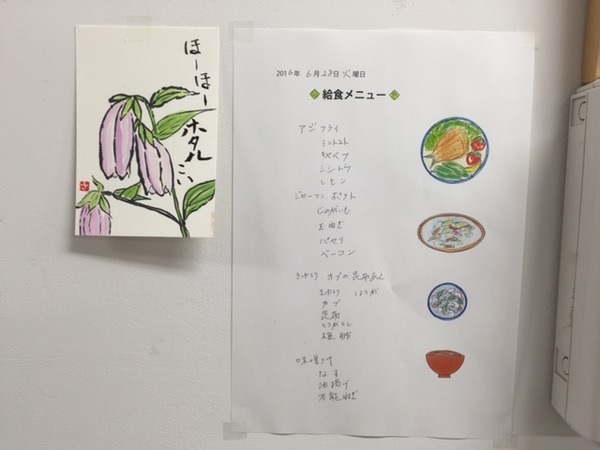 ほーほー
ホタル
こい
2016年 6月28日火曜日
給食メニュー
アジフライ
ミニトマト
キャベツ
シシトウ
レモン
ジャーマンポテト
じゃがいも
玉ねぎ
パセリ
ベーコン
きゅうり、カブの昆布あえ
きゅうり しょうが
カブ
昆布
とうがらし
味噌汁
なす
油揚げ
万能ねぎ